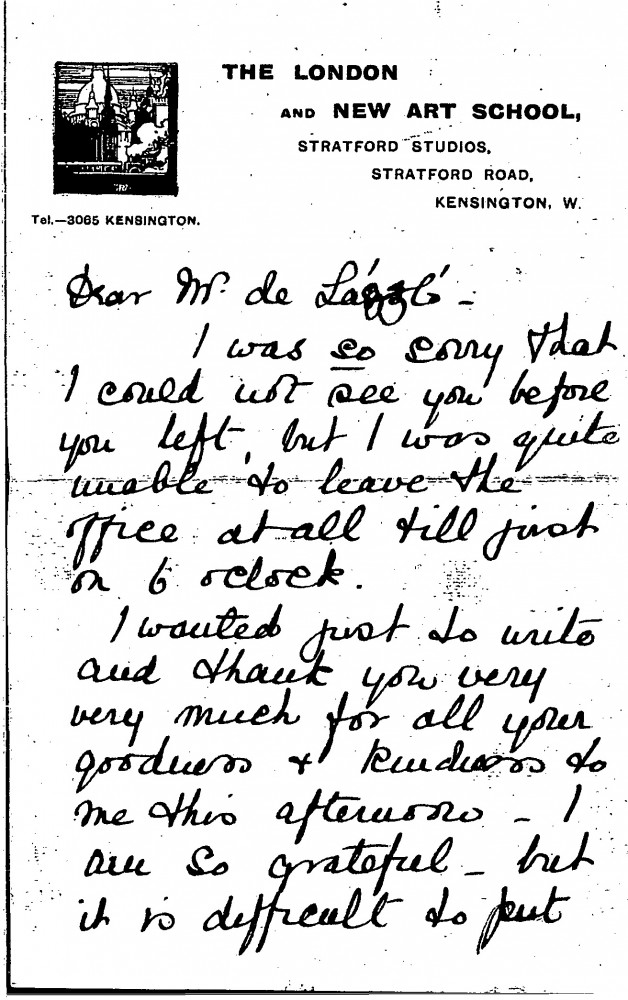 THE LONDON
AND NEW ART SCHOOL,
STRATFORD STUDIOS,
STRATFORD ROAD,
KENSINGTON, W.
Tel.—3065 KENSINGTON.
Dear Mr. de László –
I was so sorry that
I could not see you before
you left, but I was quite
unable to leave the
office at all till just
on 6 oclock.
I wanted just to write
and thank you very
very much for all your
goodness & kindness to
me this afternoon – I
am so grateful – but
it is difficult to put